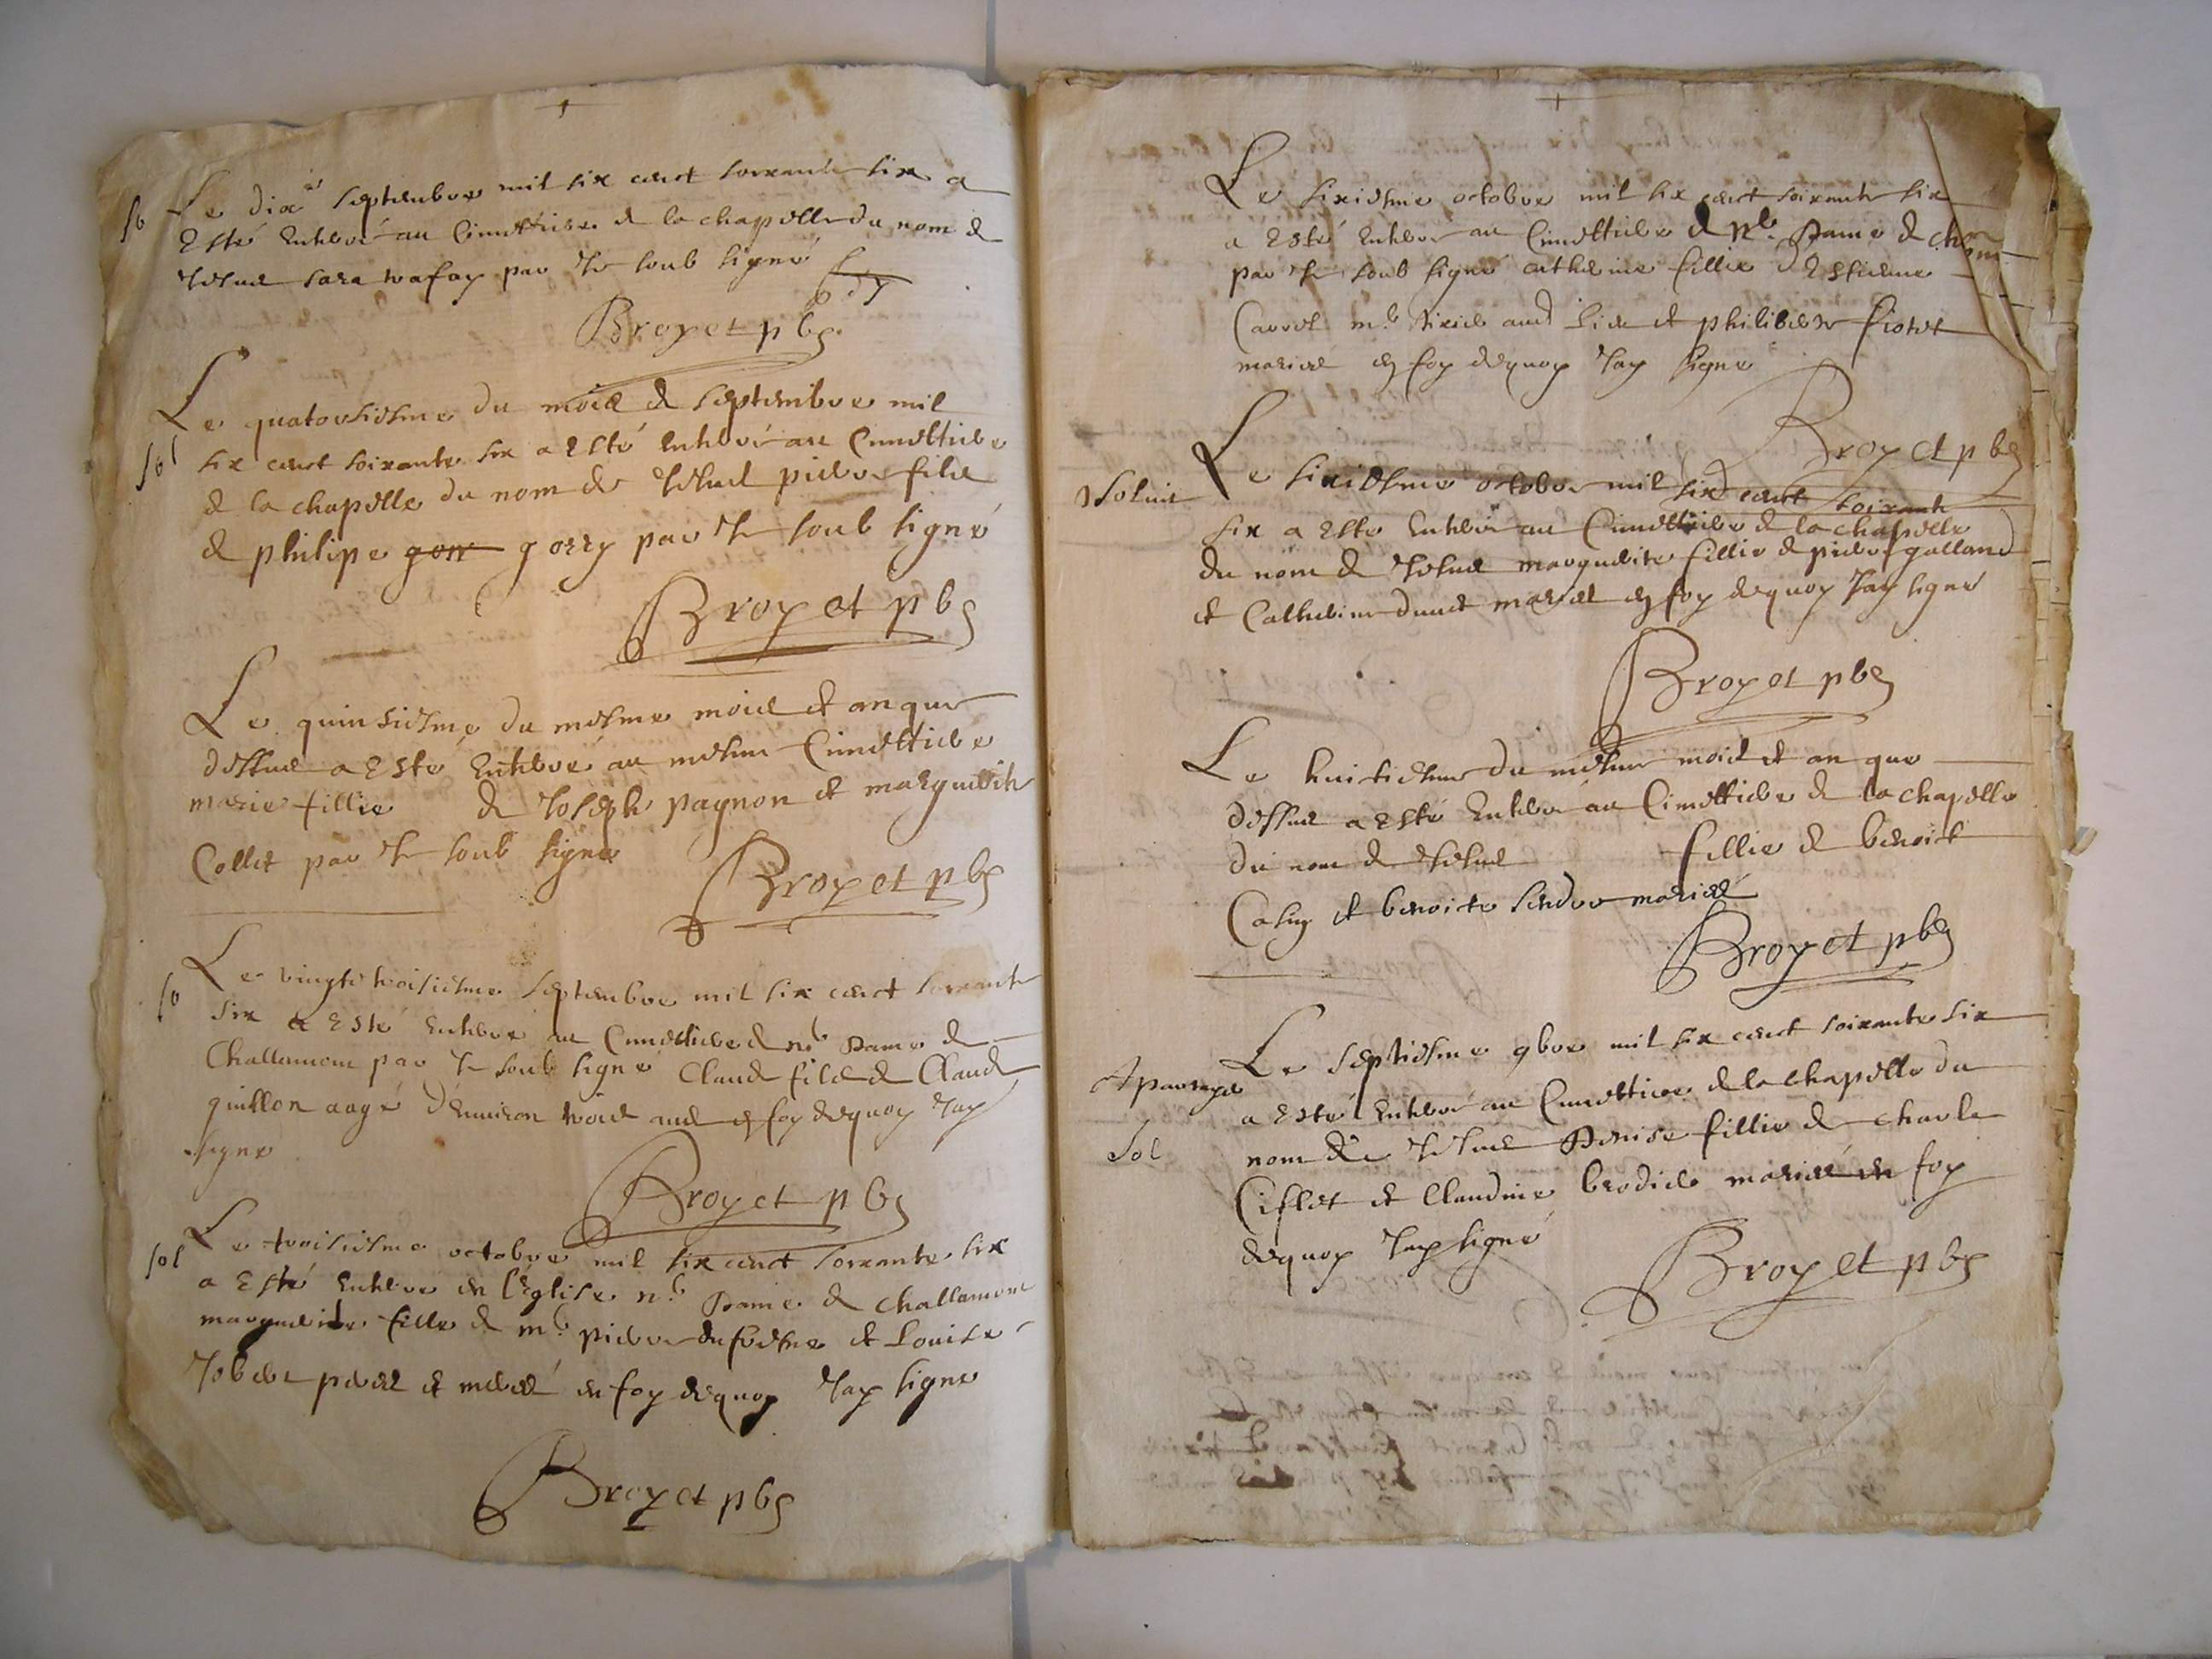 +
so Le dixe septembre mil six cent soixante six a
Esté Enterré au Cimettiere de la chapelle du nom de
Jesus sara par Je soub signé
Broyet pbr
Le quatorsiesme du mois de septembre mil
sol six cent soixante six a Esté Enterré au Cimettiere
de la chapelle du nom de Jesus pierre fils
de philipe gorr gorry par Je soub signé
Broyet pbr
Le quinsiesme du mesme mois et an que
dessus a Esté Enterré au mesme Cimettiere
marie fillie de Joseph pagnon et marguerite
Collet par Je soub signé
Broyet pbr
so Le vingt troisiesme septembre mil six cent soixante
six a Esté Enterré au Cimettiere de nre Dame de
Challamont par Je soub signé Claude fils de Claude
guillon aagé d'Environ trois ans en foy dequoy Jay
signé
Broyet pbr
sol Le troisiesme octobre mil six cent soixante six
a Esté Enterré en l'Eglise nre Dame de challamont
marguerite fille de mre pierre dufresne et Louise
Jober peres et meres en foy dequoy Jay signé
Broyet pbr
+
Le sixiesme octobre mil six cent soixante six
a Esté Enterré au Cimettiere de Nre Dame de
par Je soub signé catherine fillie d'Estienne
Carrel mre et philiberte fiotet
mariés en foy dequoy Jay signé
Broyet pbr
solvit Le sixiesme octobre mil six cent soixante
six a Esté Enterré au Cimettiere de la chapelle
du nom de Jesus marguerite fillie de pierre galland
et Catherine mariés en foy dequoy Jay signé
Broyet pbr
Le huitiesme du mesme mois et an que
dessus a Esté Enterré au Cimettiere de la chapelle
du nom de Jesus fillie de benoit
et benoite mariés
Broyet pbr
Le septiesme 9bre mil six cent soixante six
a Esté Enterré au Cimettiere de la chapelle du
sol nom de Jesus Denise fillie de charle
Ciflet et Claudine brodier mariés en foy
dequoy Jay signé
Broyet pbr